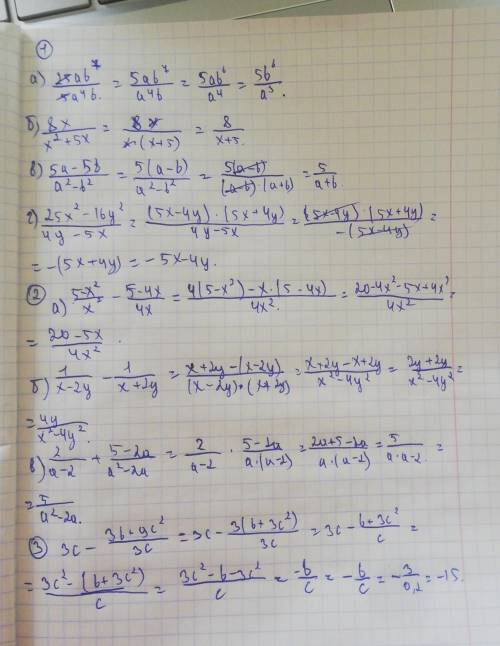 ①
а) 25ab⁷/5a⁴b = 5ab⁷/a⁴b = 5ab⁶/a⁴ = 5b⁶/a³.
б) 8x/x²+5x = 8x/x·(x+5) = 8/x+5.
в) 5a-5b/a²-b² = 5(a-b)/a²-b² = 5(a-b)/(a-b)·(a+b) = 5/a+b.
г) 25x²-16y²/4y-5x = (5x-4y)·(5x+4y)/4y-5x = (5x-4y)·(5x+4y)/-(5x-4y) =
= -(5x+4y) = -5x-4y.
② а) 5-x²/x² - 5-4x/4x = 4(5-x²)-x·(5-4x)/4x² = 20-4x²-5x+4x²/4x² =
= 20-5x/4x².
б) 1/x-2y - 1/x+2y = x+2y-(x-2y)/(x-2y)·(x+2y) = x+2y-x+2y/x²-4y² = 2y+2y/x²-4y² =
= 4y/x²-4y².
в) 2/a-2 + 5-2a/a²-2a = 2/a-2 · 5-2a/a·(a-2) = 2a+5-2a/a·(a-2) = 5/a·a-2 =
= 5/a²-2a.
③ 3c - 3b+9c²/3c = 3c - 3(b+3c²)/3c = 3c - b+3c²/c =
= 3c²-(b+3c²)/c = 3c²-b-3c²/c = -b/c = -b/c = -3/0,2 = -15.